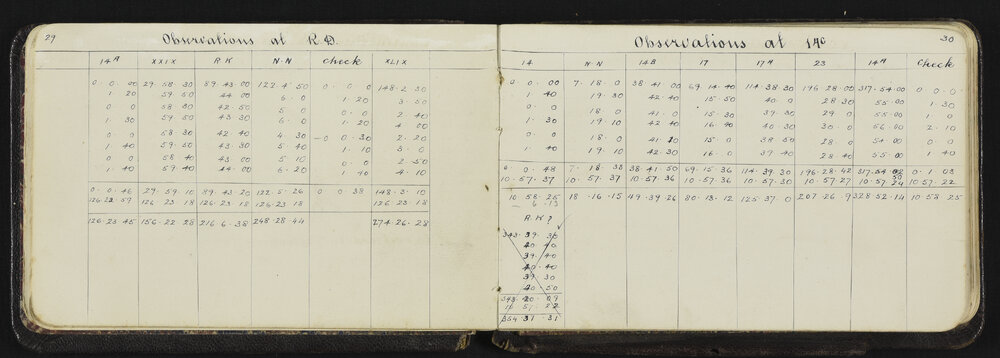 29
Observations at R.D.
14A XXIX RK N·N Check XLIX
0·0·00 29·58·30 89·43·00 122·4·50 0·0·0 148·2·50
1·20 59·50 44·00 6·0 1·20 3·50
0·0 58·00 42·50 5·0 0·0 2·40
1·30 59·50 43·30 6·0 1·20 4·00
0·0 58·30 42·40 4·30 –0·0·30 2·20
1·40 59·50 43·30 5·40 1·10 3·0
0·0 58·40 43·00 5·10 0·0 2·50
1·40 59·40 44·00 6·20 1·40 4·10
0·0·46 29·59·10 89·43·20 122·5·26 0·0·38 148·3·10
126·22·59 126·23·18 126·23·18 126·23·18 126·23·18
126·23·45 156·22·28 216·6·38 248·28·44 274·26·28
30
Observations at 14C
14 N·N 14B 17 17A 23 14A Check
0·0·00 7·18·0 38·41·00 69·14·40 114·38·30 196·28·00 317·54·00 0·0·0
1·40 19·30 42·40 15·50 40·0 28·30 55·00 1·30
0·0 18·0 41·0 15·30 39·30 29·0 55·00 0·0
1·30 19·10 42·40 16·40 40·30 30·0 56·00 2·10
0·0 18·0 41·20 15·0 38·50 28·0 54·00 0·0
1·40 19·10 42·30 16·0 39·40 28·40 55·00 1·40
0·0·48 7·18·38 38·41·50 69·15·36 114·39·30 196·28·42 317·54·02 0·1·03
10·57·37 10·57·37 10·57·36 10·57·36 10·57·30 10·57·27 10·57·24 10·57·22
10·58·25 18·16·15 49·39·26 80·13·12 125·37·0 207·26·9 328·52·14 10·58·25
R.K?
343·39·30
40·40
39·40
40·40
39·30
40·50
343·40·09
354·31·31